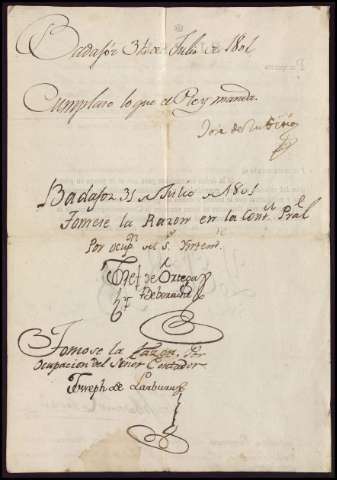 Badajoz 31 de Julio de 1801
Cumplase lo que el Rey manda.
Josè de
Badajoz 31 de Julio de 1801
Tomese la Razon en la Cont.l Pral
Por ocup.n del S.r
Josef de Ortega
Tomose la Razon. Por
Ocupacion del Señor Contador
Joseph de